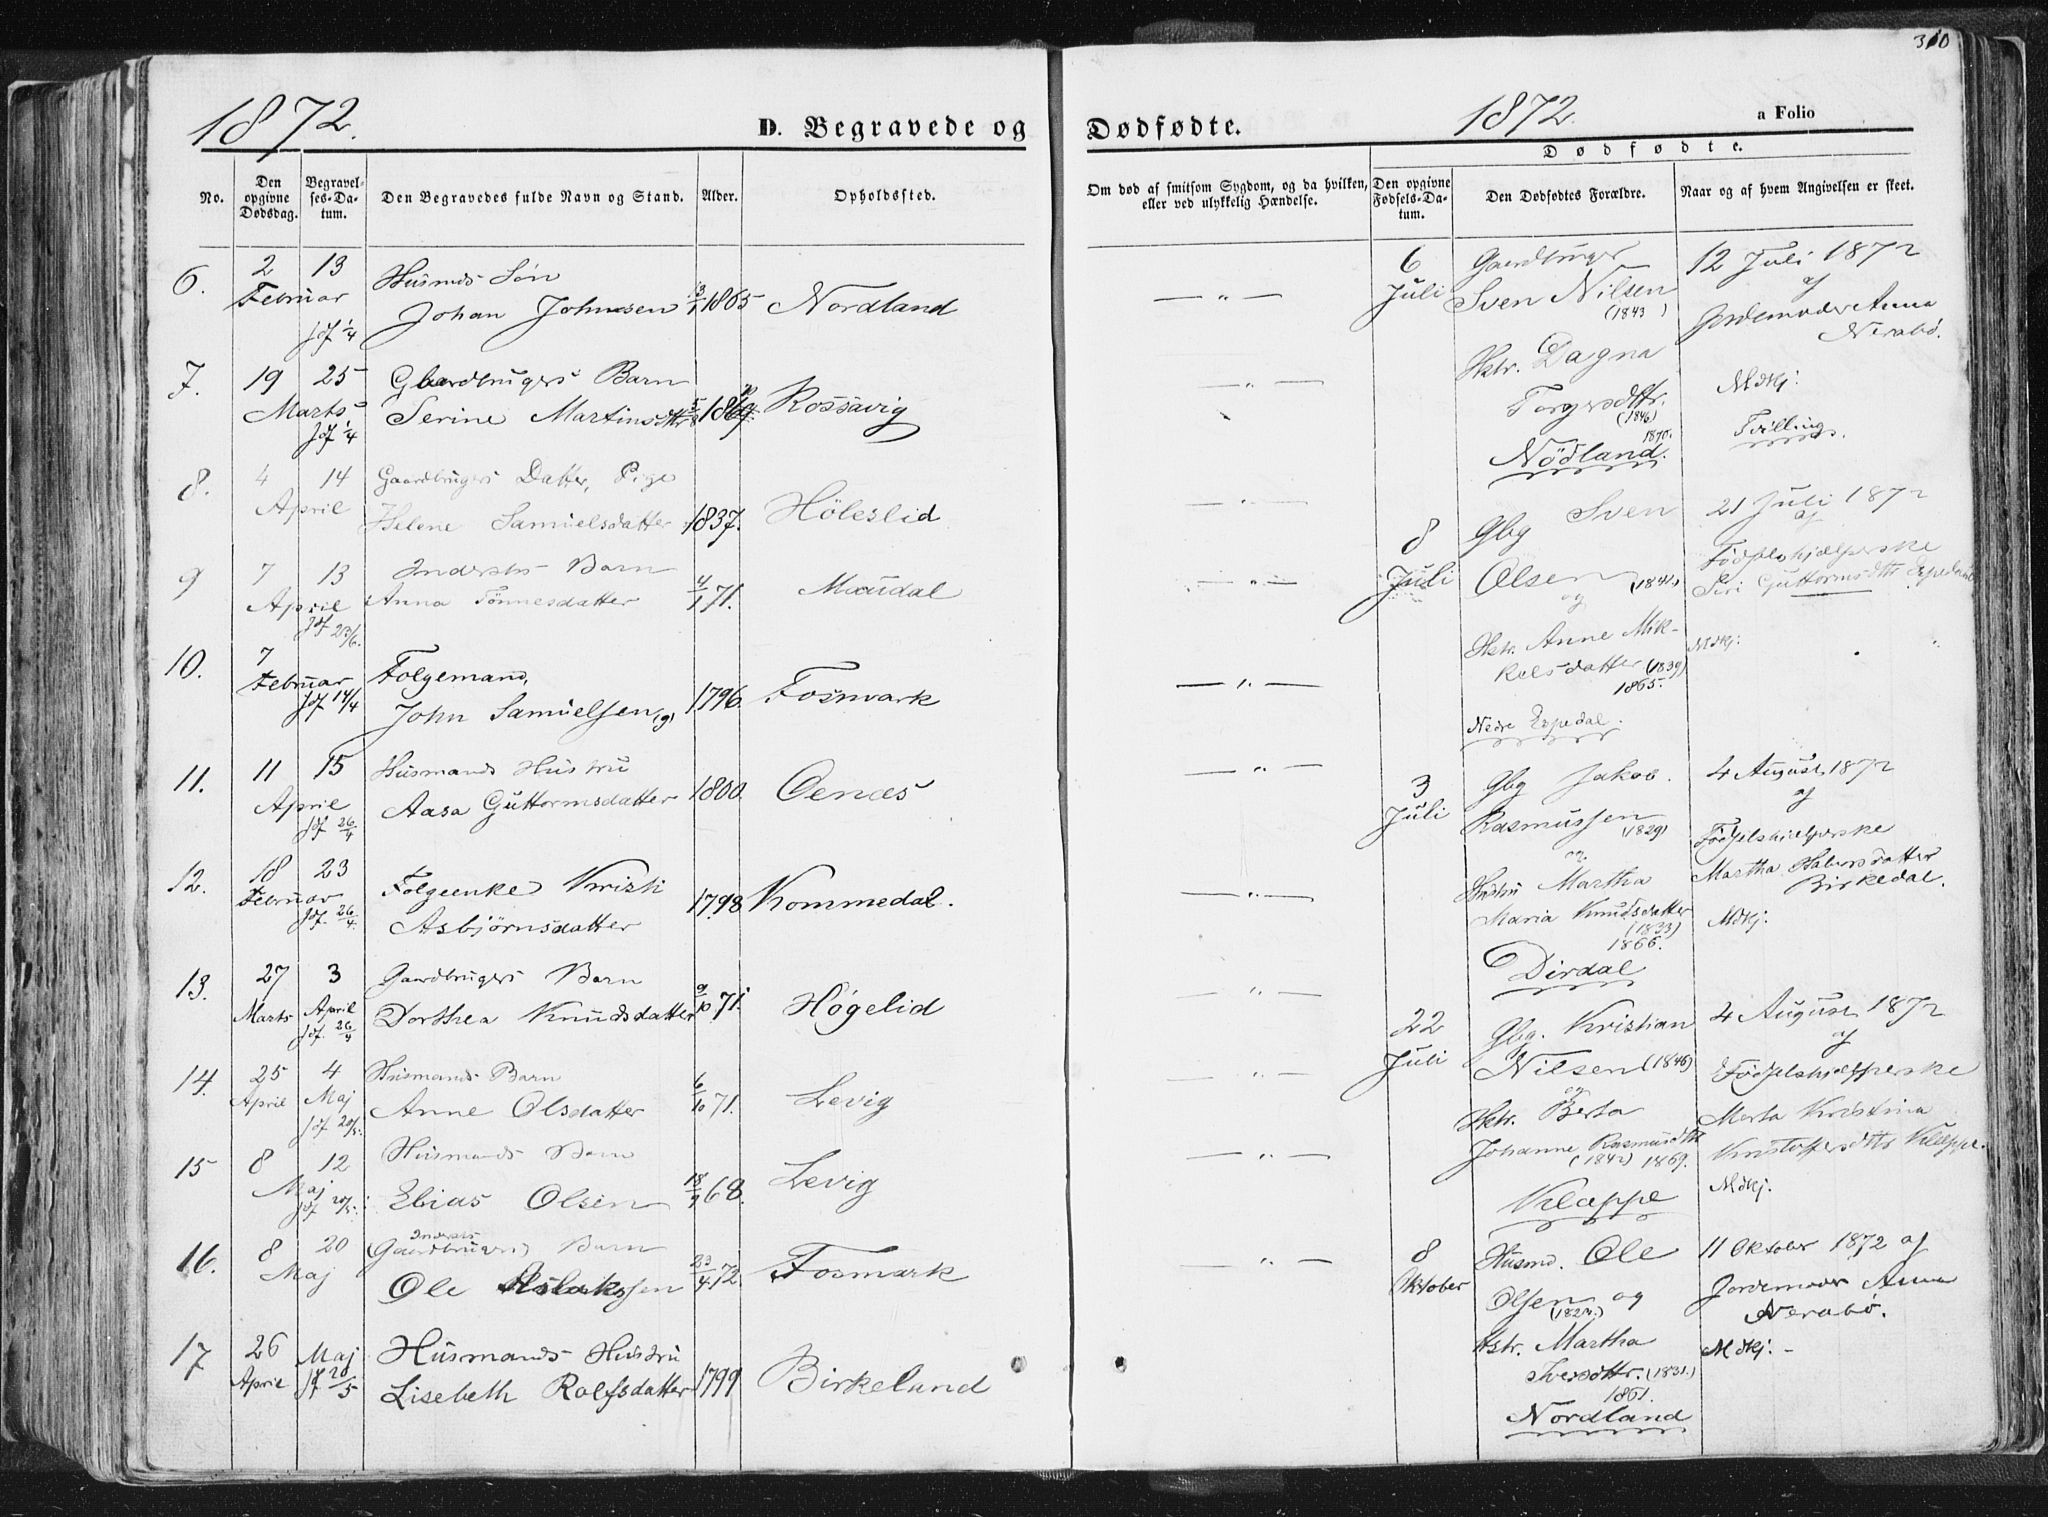 310
1872.
D. Begravede og
Dødfødte.
1872
a Folio
No.
Den opgivne Dødsdag.
Begravelses-Datum.
Den Begravedes fulde Navn og Stand.
Alder.
Opholdssted.
Om død af smitsom Sygdom, og da hvilken, eller ved ulykkelig Hændelse.
Dødfødte.
Den opgivne Fødsels-Datum.
Den Dødfødtes Forældre.
Naar og af hvem Angivelsen er skeet.
6. 2 Februar 13 Jdf 1/4
Husmds Søn
Johan Johnsen 13/1 1865 Nordland
7. 19 Marts 25 Jdf 1/4
Gaardbrugers Barn
Serine Martinsdttr Rossavig
8. 4 April 14
Gaardbrugers Datter, Pige
Helene Samuelsdatter 1837. Höleslid
9 7 April 13 Jdf 23/6.
Inderstes Barn
Anna Tönnesdatter 4/1 71. Maudal
10. 7 Februar Jdf 14/4
Folgemand,
John Samuelsen (g) 1796. Fosmark
11. 11 April 15 Jdf 26/4
Husmands Hustru
Aasa Guttormsdatter 1800. Oenæs
12. 18 Februar 23 Jdf. 26/4.
Folgeenke Kristi
Asbjörnsdatter 1798 Kommedal.
13. 27 Marts 3 April Jdf. 26/4
Gaardbrugers Barn
Dorthea Knudsdatter 9/10 71. Høgelid
14. 25 April 4 Maj Jdf 20/5.
Husmands Barn
Anne Olsdatter 6/10 71. Levig
15 8 Maj 12 Jdf 20/5.
Husmands Barn
Elias Olsen 18/9 68. Levig
16. 8 Maj 20
Inderstes
(Gaardbrugers) Barn
Ole Aslaksen 23/4 72. Fosmark
17 26 April Maj Jdf 20/5
Husmands Hustru
Lisebeth Rolfsdatter 1799 Birkeland
6 Juli
Gaardbruger
Sven Nilsen
(1843)
Hstr. Dagna
Torgersdttr.
(1846)
1870.
Nödland.
12 Juli 1872
af
Jordemoder Anna
Nerabø.
Mdkj:
Tvilling.
8 Juli
Gbg Sven
Olsen (1841.)
og
Hstr. Anne Mik-
kelsdatter (1839)
1865.
Nedre Espedal.
21 Juli 1872
af
Födselshjælperske
Siri Guttormsdttr Espedal
Mdkj:
3 Juli
Gbg Jakob.
Rasmussen
(1829)
og
Hustru Martha
Maria Knudsdatter
(1833)
1866.
Dirdal
4 August 1872
af
Födselshjælperske
Martha Habersdatter
Birkedal.
Mdkj:
22 Juli
Gbg. Kristian
Nilsen (1846)
og
Hstr. Berta
Johanne Rasmusdttr
(1842) 1869.
Klæppe
4 August 1872
af
Födselshjelperske
Merta Kristina
Kristoffersdttr Klæppe.
Mdkj.
8 Oktober
Husmd. Ole
Olsen og
(1827.)
Hstr. Martha
Iversdttr. (1831.)
1861.
Nordland
11 Oktober 1872 af
Jordemoder Anna
Nerabø.
Mdkj: -